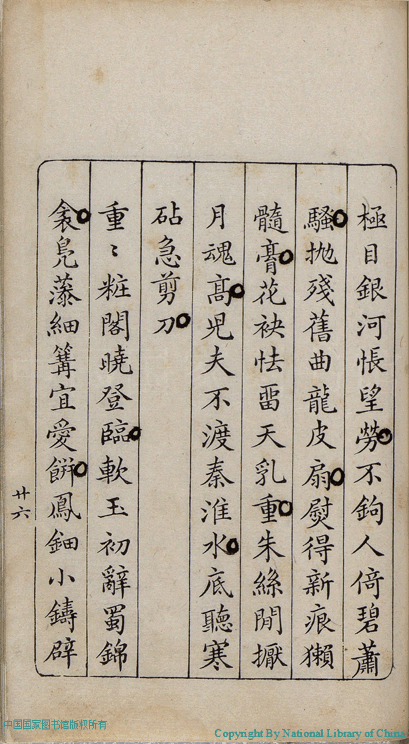 極目銀河悵望勞不鉤人倚碧蕭
騷拋殘舊曲龍皮扇熨得新痕獺
髓膏花袂怯畱天乳重朱絲閒擫
月魂髙兒夫不渡秦淮水底聽寒
砧急剪刀
重〻粧閣曉登臨軟玉初辭蜀錦
衾鳬藻細篝宜愛餅鳳鈿小鑄辟
廿六
中国国家图书馆版权所有
Copyright By National Library of China